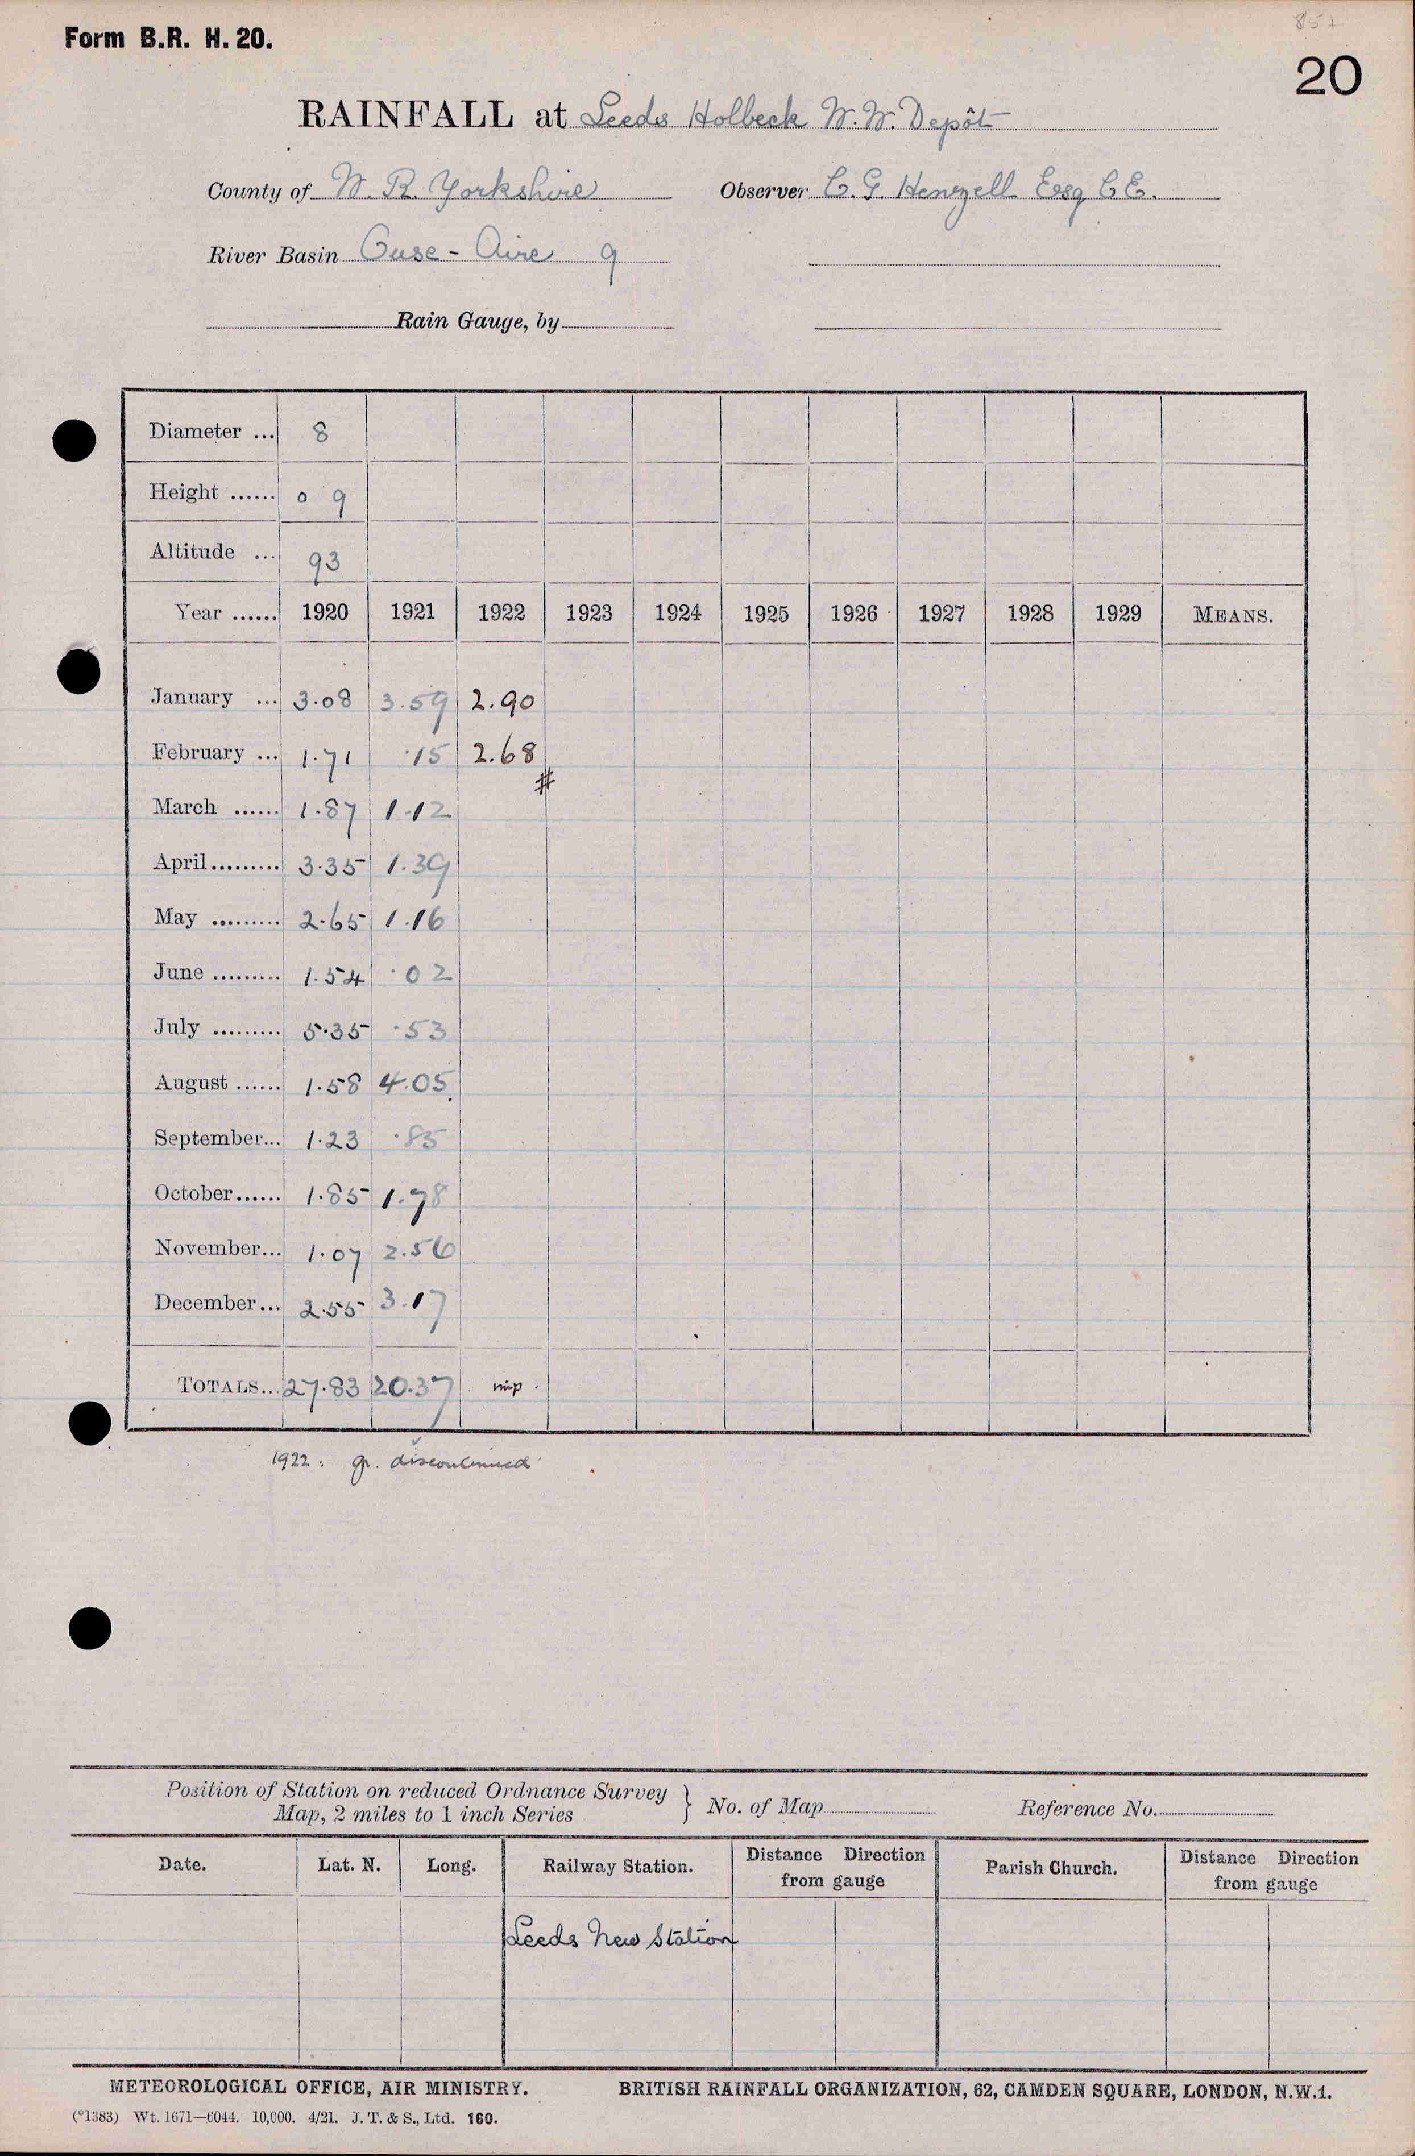 Form B.R. H. 20.
851
20
RAINFALL at Leeds Holbeck W.W. Depôt
County of W. R. Yorkshire Observer C. G. Henzell Essq C E.
River Basin Ouse - Aire 9
Rain Gauge, by
Diameter ... 8
Height ...... 0 9
Altitude ... 93
Year ...... 1920 1921 1922 1923 1924 1925 1926 1927 1928 1929 MEANS.
January ... 3.08 3.59 2.90
February ... 1.71 .15 2.68
#
March ...... 1.87 1.12
April......... 3.35 1.39
May ......... 2.65 1.16
June ......... 1.54 .02
July ......... 5.35 .53
August ...... 1.58 4.05
September... 1.23 .85
October...... 1.85 1.78
November... 1.07 2.56
December... 2.55 3.17
TOTALS... 27.83 20.37 inp.
1922: gr. discontinued
Position of Station on reduced Ordnance Survey
Map, 2 miles to 1 inch Series } No. of Map Reference No.
Date. Lat. N. Long. Railway Station. Distance Direction from gauge Parish Church. Distance Direction from gauge
Leeds New Station
METEOROLOGICAL OFFICE, AIR MINISTRY. BRITISH RAINFALL ORGANIZATION, 62, CAMDEN SQUARE, LONDON, N.W.1.
(*1383) Wt. 1671—6044. 10,000. 4/21. J. T. & S., Ltd. 160.